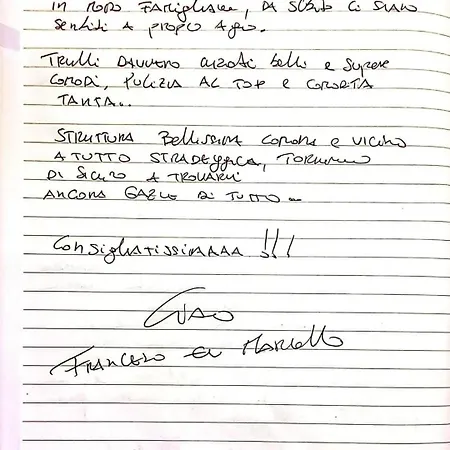 in modo famigliare, da subito ci siamo
sentiti a propo agio.
Trulli davvero curati belli e super
comodi, pulizia al top e comodità
tanta..
Struttura bellissima comoda e vicino
a tutto strategica, torneremo
di sicuro a trovarvi
ancora grazie di tutto...
Consigliatissimaaaa !!!
Ciao
Francesco e Mariella